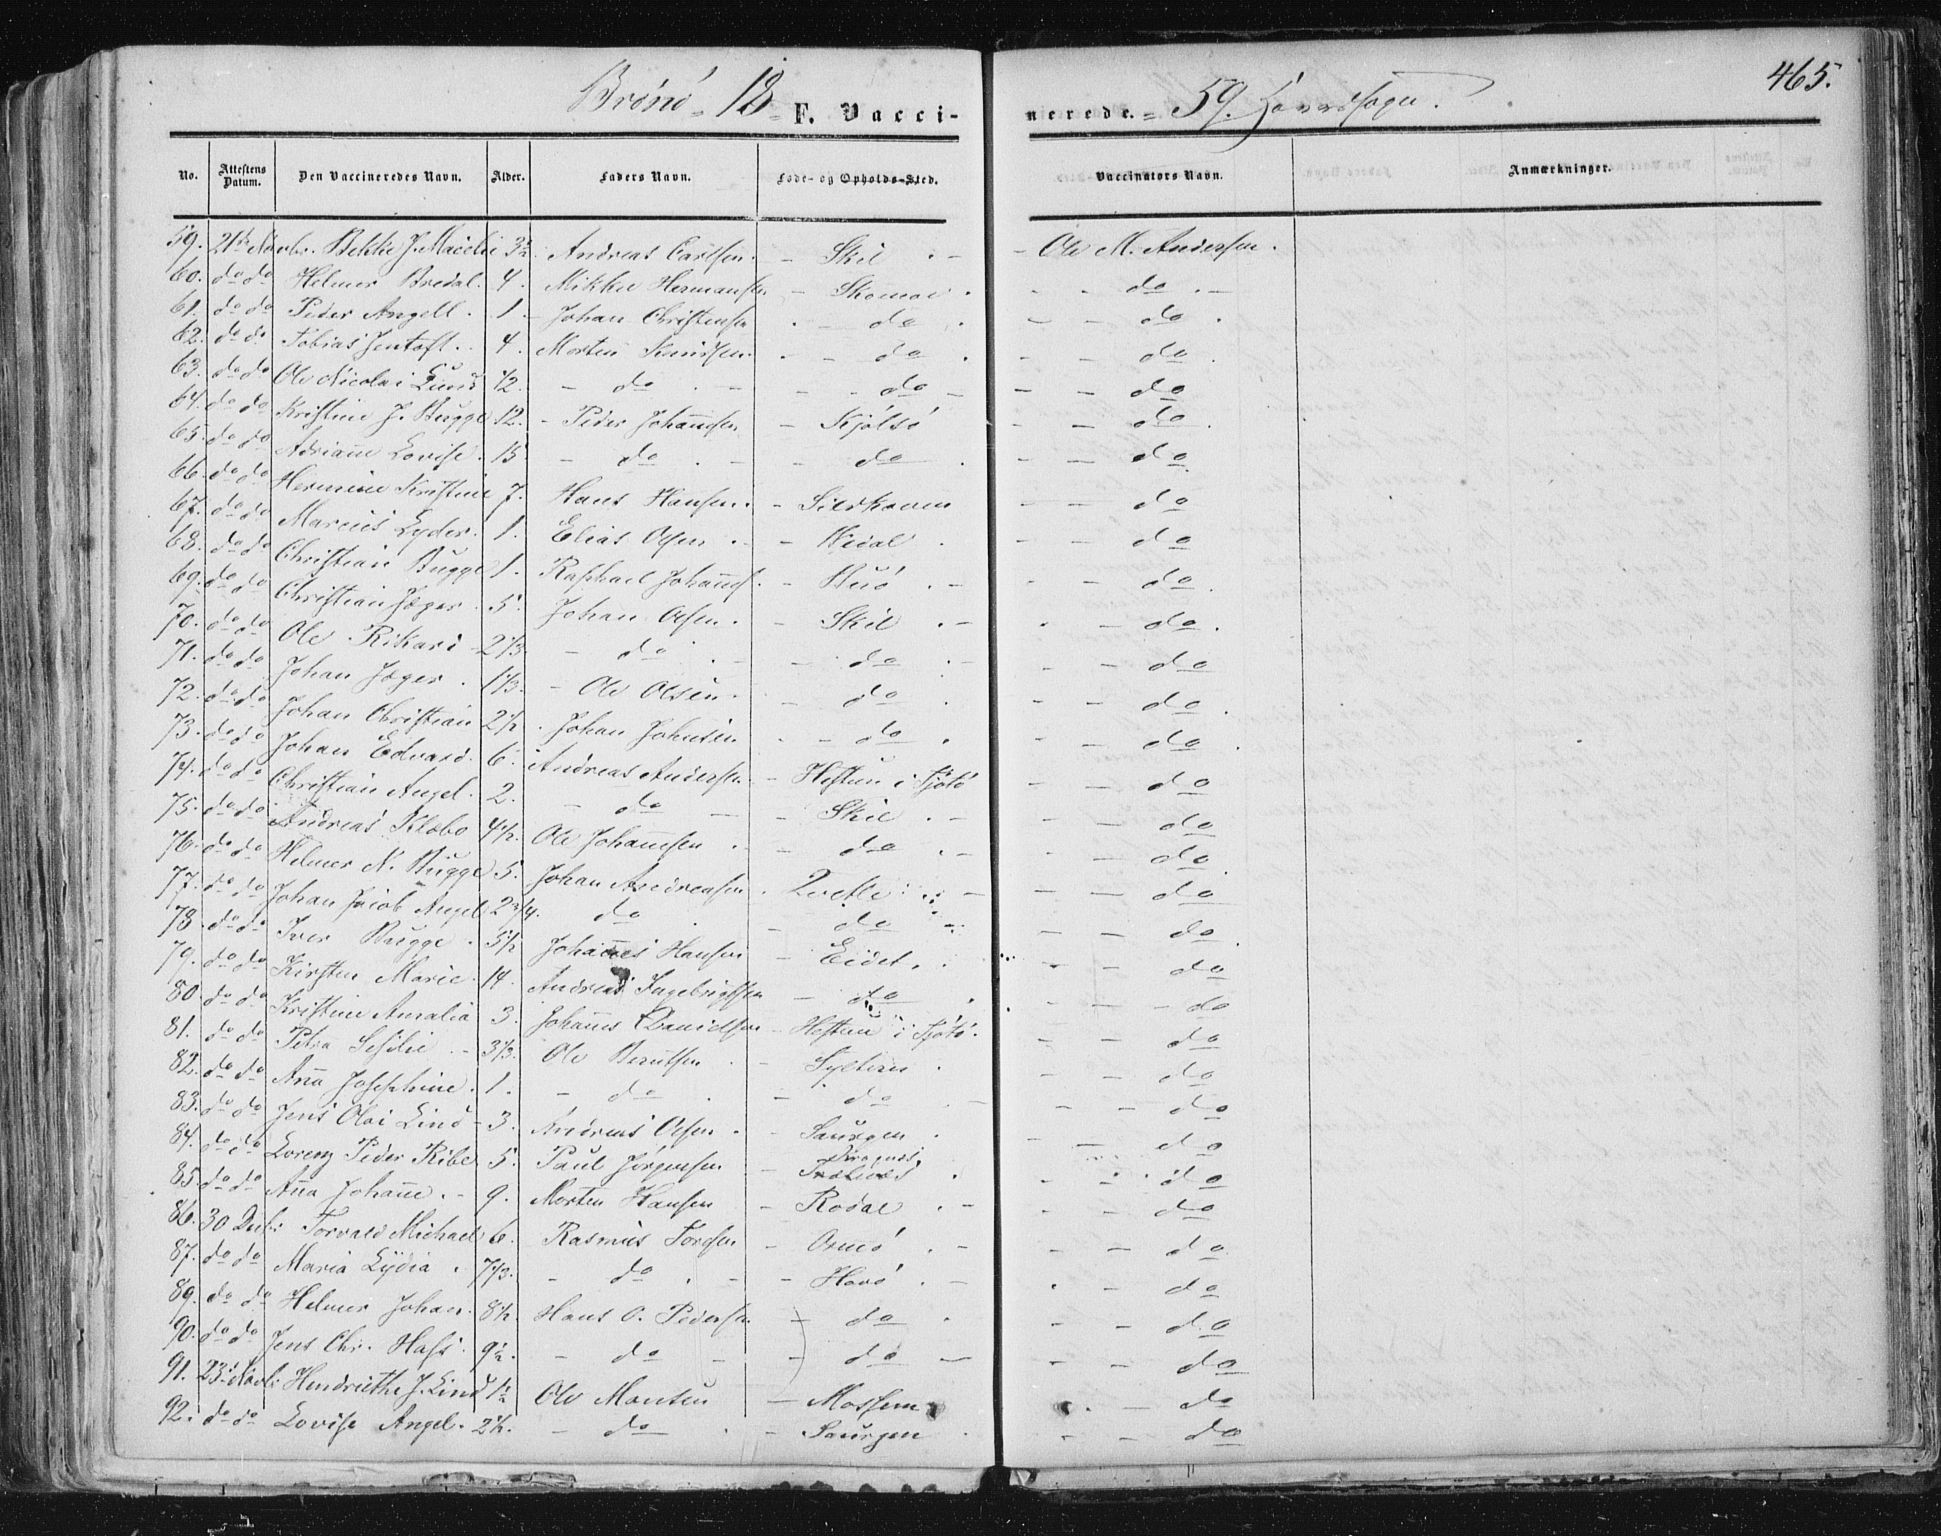 Brønø 18 F. Vacci-nerede. 59. Hovedsogn. 465.
No. Attestens Datum. Den Vaccineredes Navn. Alder. Faders Navn. Føde- og Opholds-Sted. Vaccinators Navn. Anmærkninger.
59. 21de Novbr. J. 3½ Andreas Carlsen. - Skil - Ole M. Andersen.
60. do do Helmer Bredal. 4. Mikkel Hermansen - Skomoe. - do
61. do do Peder Angell. 1. Johan Christensen - do - do
62. do do Tobias Jentoft. 4. Morten Knudsen. - do - do
63. do do Ole Nicolai Lund ½. - do - do - do
64. do do Kristine J. Bugge 12. - Peder Johansen - Kjølsø - do
65. do do Adriane Lovise. 15 - do - do - do
66. do do Hermine Kristine 7. Hans Hansen. - Sildhavn - do
67. do do Marcus Lyder. 1. Elias Olsen - Nidal. - do
68. do do Christian Bugge 1. Raphael Johans. - Husø - do
69. do do Christian Jæger. 5. Johan Olsen. - Skil - do.
70. do do Ole Rikard 2⅓ - do - do - do
71. do do Johan Jæger. 1⅓. - Ole Olsen. - do - do
72. do do Johan Christian 2½. Johan Johnsen. - do - do
73. do do Johan Edvard. 6. Andreas Andersen - Hestun i Tjøtø - do
74. do do Christian Angel. 2. - do - Skil - do
75. do do Andreas Klæbo 4½. Ole Johannesen - do - do
76. do do Helmer N. Bugge 5. Johan Andreasen. - do
77. do do Johan Jacob Angel 2¾. do - do - do
78. do do Iver Bugge. 5½ Johannes Hansen - Eidet. - do
79. do do Kirsten Marie. 14. Andreas Ingebrigtsen - do - do
80. do do Kristine Amalia 3. Johannes Danielsen - Hestun i Tjøtø. - do
81. do do Petra Sesilie - 3⅓. Ole Berntsen - Sylteren. - do
82. do do Anna Josephine. 1. - do - do - do
83. do do Jens Olai Lind - 3. Andreas Olsen. - Saurgen. - do
84. do do Lorenz Peder Ribe 5. Paul Jørgensen - Trælnes - do
85. do do Anna Johanne. - 9. Morten Hansen - Rodal - do
86. 30 Decbr: Torvald Michael 6. Rasmus - Ormø - do
87. do do Maria Lydia. 7⅓. - do - Horø - do
89. do do Helmer Johan. 8½. Hans O. Pedersen - do - do
90. do do Jens Chr. Hass. 9½. - do - do - do
91. 23. Novbr: Hendriethe J. Lind 1½ Ole Monsen - Mosheim - do
92. do do Lovise Angel. 2½. - do - Saurgen - do